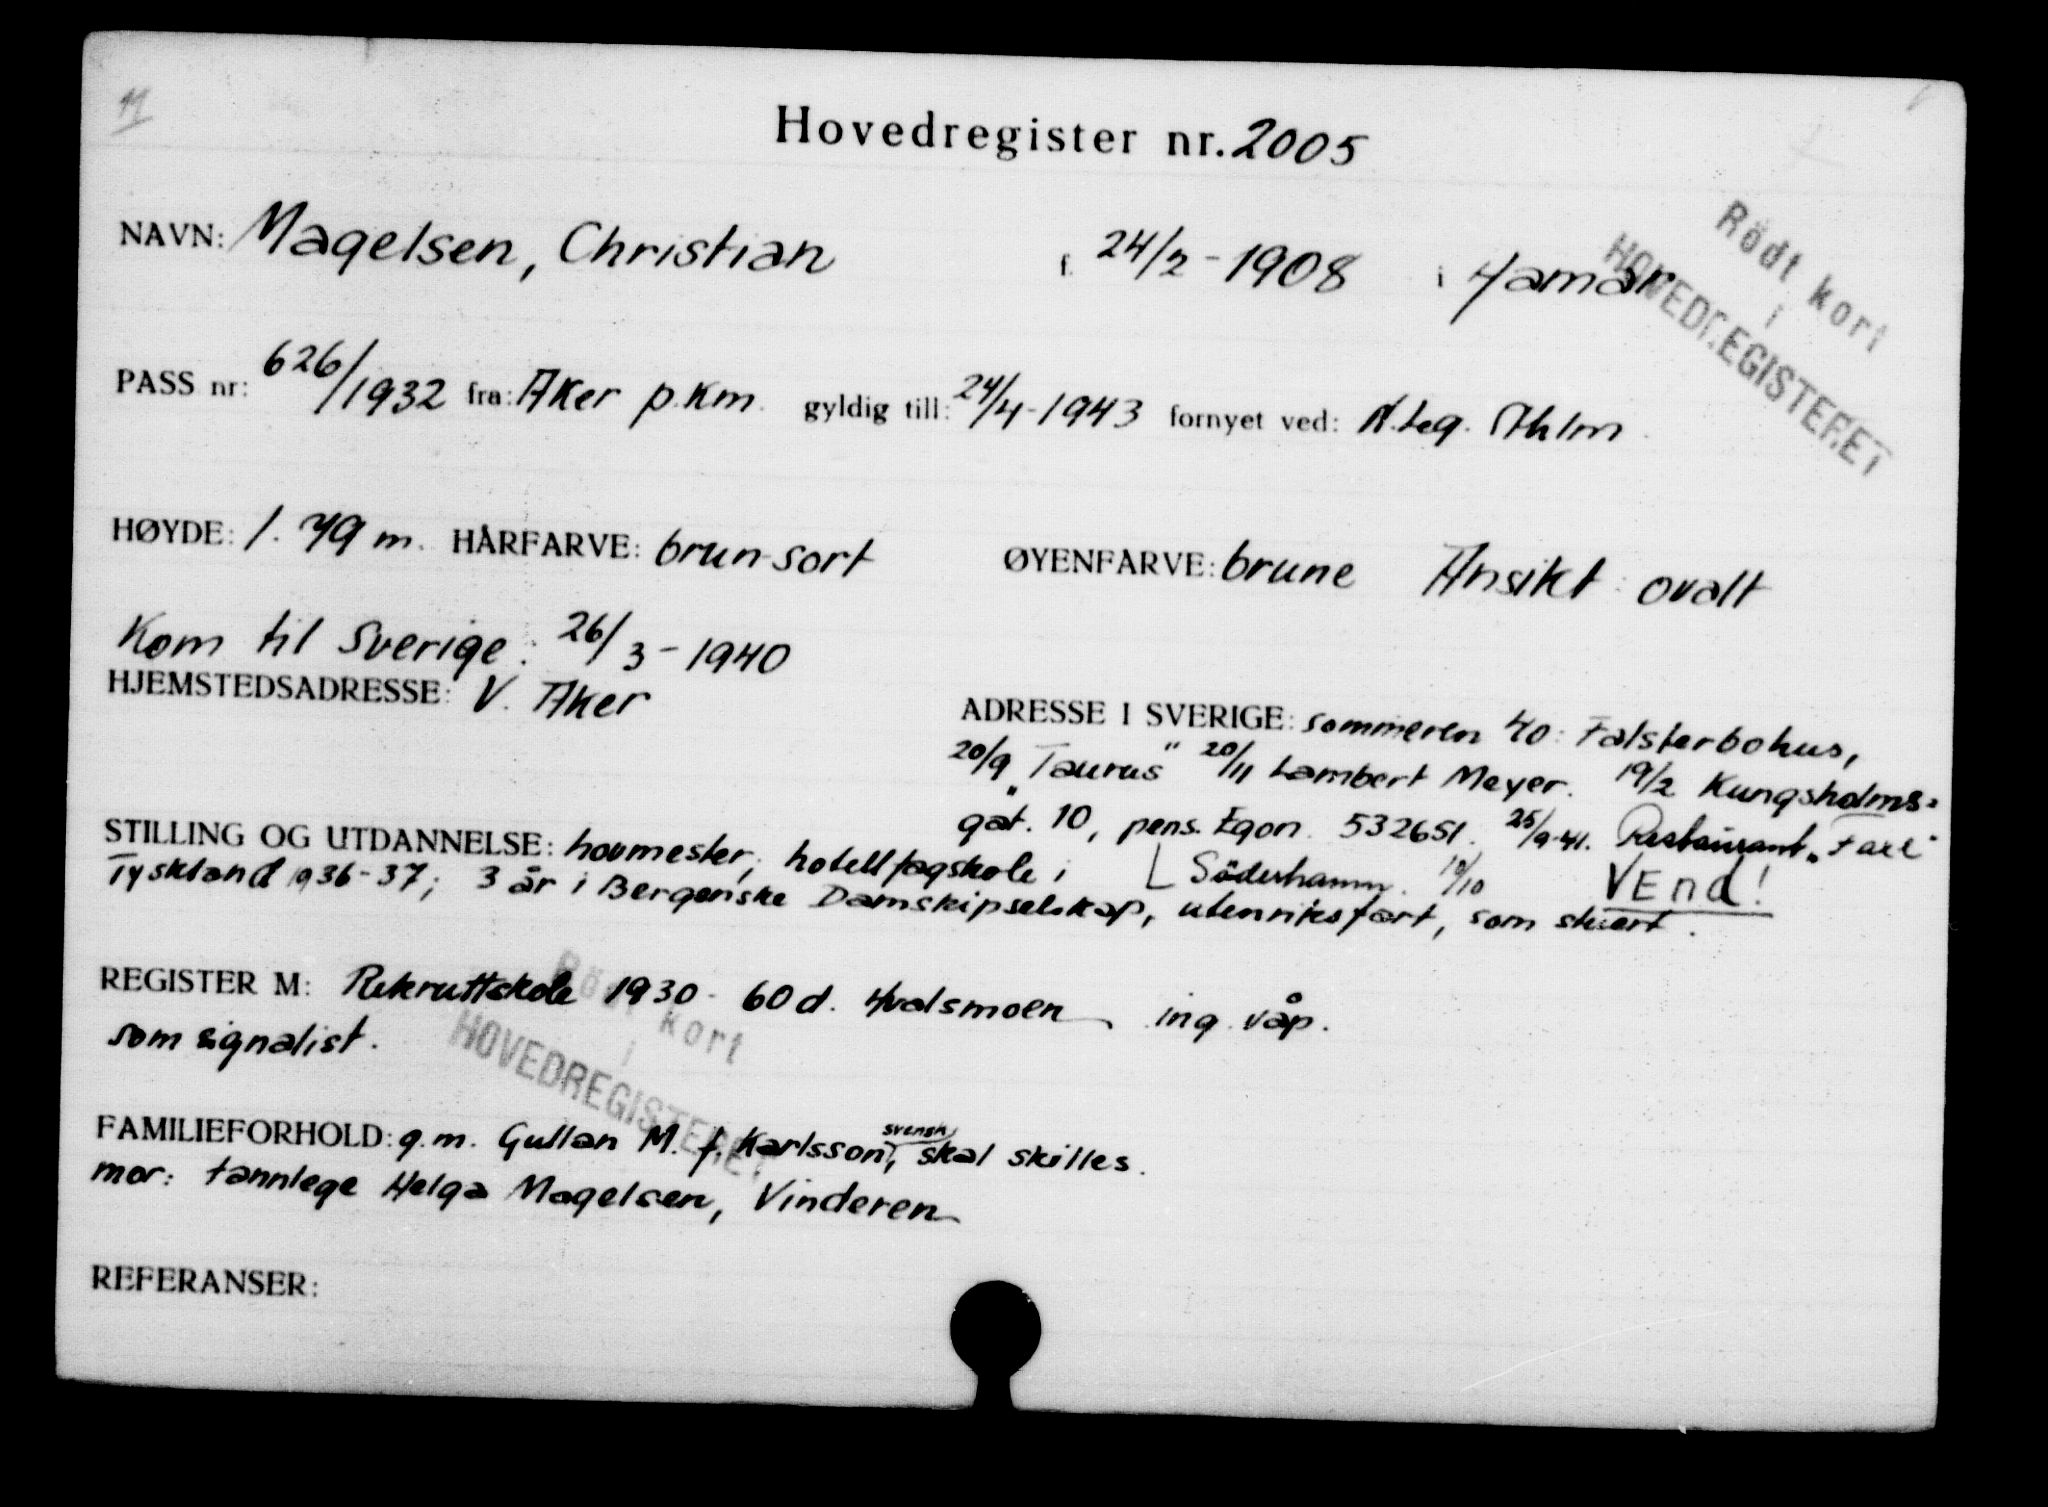 M
Hovedregister nr. 2005
Rödt kort
i
HOVEDREGISTERET
NAVN: Magelsen, Christian f. 24/2 - 1908 i Hamar
PASS nr: 626/1932 fra: Aker p.km. gyldig till: 24/4-1943 fornyet ved: N.Leg. Sthlm
HØYDE: 1.79 m. HÅRFARVE: brun-sort ØYENFARVE: brune Ansikt: ovalt
Kom til Sverige: 26/3 - 1940
HJEMSTEDSADRESSE: V. Aker
ADRESSE I SVERIGE: sommeren 40: Falsterbohus,
20/9 "Taurus" 20/11 Lambert Meyer. 19/2 Kungsholms-
gat. 10, pens. Egon. 532651. 25/9-41. Restaurant "Faxe"
Söderhamn. 10/10 VEnd!
STILLING OG UTDANNELSE: hovmester; hotellfagskole i
Tyskland 1936-37; 3 år i Bergenske Damskipselskap, utenriksfart, som stuert.
REGISTER M: Rekruttskole 1930 - 60 d. Hvalsmoen ing. våp.
som signalist.
Rödt kort
i
HOVEDREGISTERET
FAMILIEFORHOLD: g.m. Gullan M. f. Karlsson, svensk, skal skilles.
mor: tannlege Helga Magelsen, Vinderen
REFERANSER: